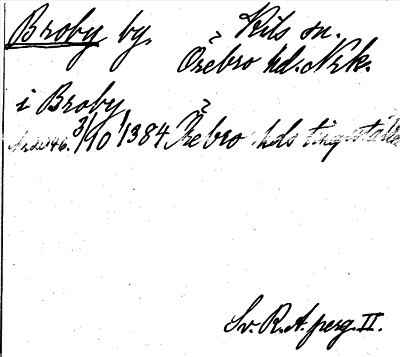 Broby by. Kils sn.
Örebro hd. Nrk.
i Broby
3/10 1384 Örebro hds tingställe
Sv. R. A. perg. II.